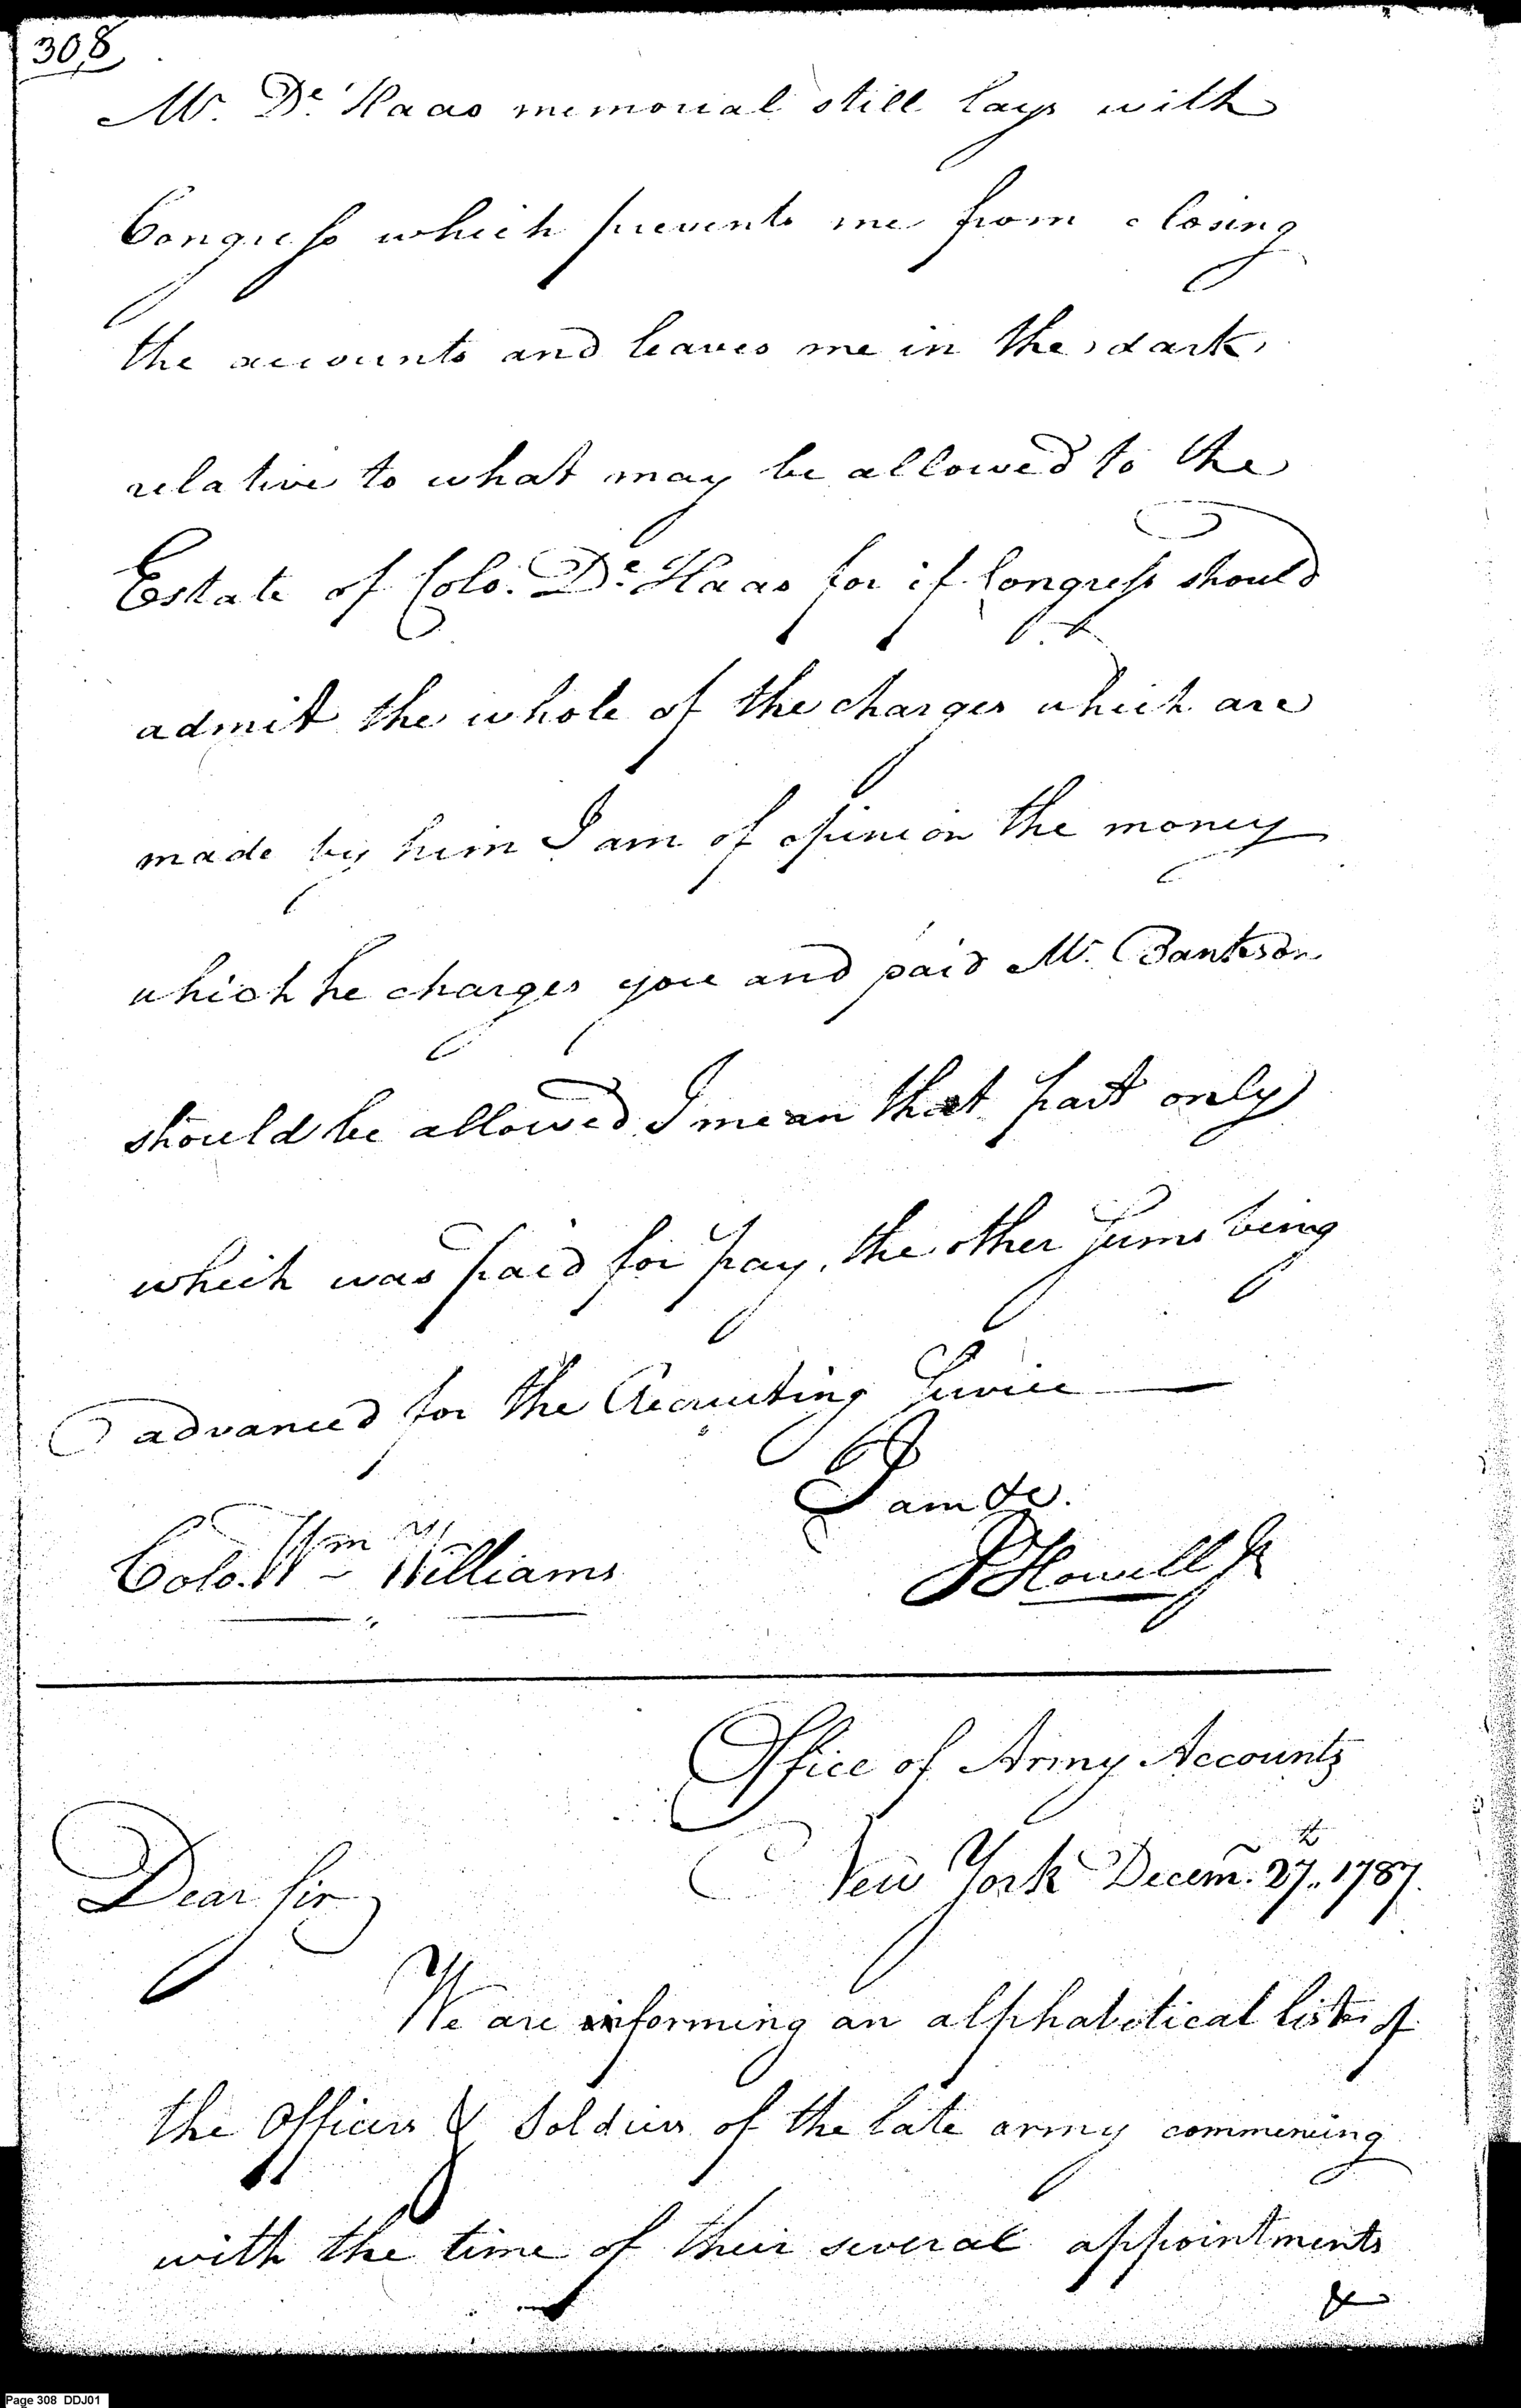 308
Mr. De Haas memorial still lays with
Congress which prevents me from closing
the accounts and leaves me in the dark
relative to what may be allowed to the
Estate of Colo. De Haas for if Congress should
admit the whole of the charges which are
made by him I am of opinion the money
which he charges you and paid Mr. Bankson
should be allowed I mean that part only
which was paid for pay, the other sums being
advanced for the Recruiting Service
I am &c.
Colo. Wm Williams
JHowell Jr
Office of Army Accounts
New York Decem. 27th 1787.
Dear Sir
We are informing an alphabetical list of
the Officers & Soldiers of the late army commencing
with the time of their several appointments
&
Page 308 DDJ01